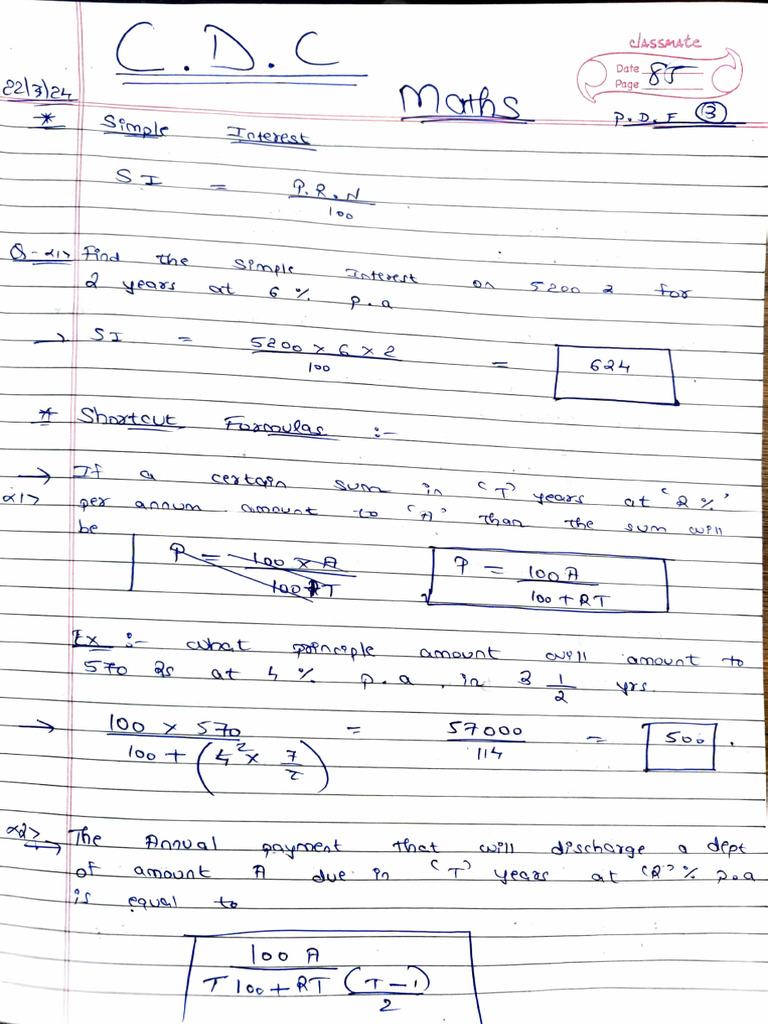 C.D.C
classmate
Date 85
Page
22/3/24
Maths
P.D.F 13
* Simple Interest
SI = P.R.N / 100
Q-<1> Find the simple Interest on 5200 2 for
2 years at 6 % p.a
→ SI = 5200 x 6 x 2 / 100 = 624
* Shortcut Formulas :-
→ If a certain sum in 'T' years at 'R %'
<1> per annum amount to 'A' than the sum will
be
P = 100 x A / 100 + RT P = 100 A / 100 + RT
Ex :- what principle amount will amount to
570 Rs at 4 % p.a. in 3 1/2 yrs.
→ 100 x 570 / 100 + (4² x 7/2) = 57000 / 114 = 500.
<2> The Annual payment that will discharge a dept
→ of amount A due in 'T' years at 'R' % p.a
is equal to
100 A / T 100 + RT (T-1) / 2